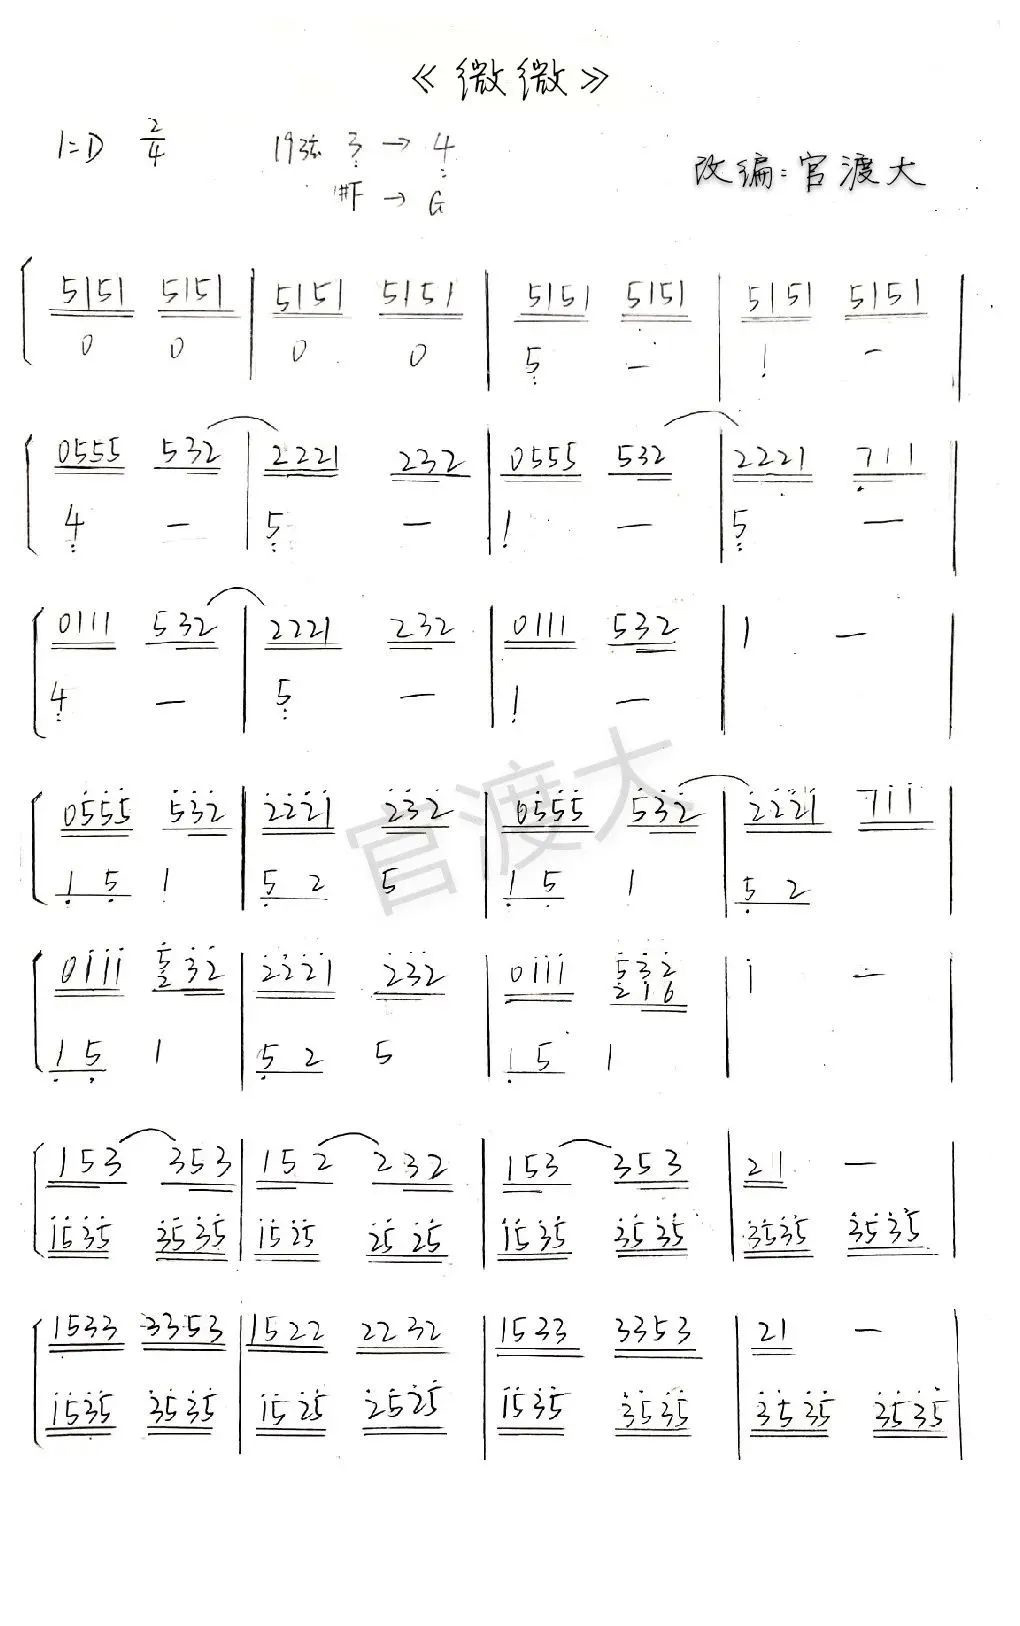 《微微》
1=D 2/4 19弦 3 → 4
#F → G
改编:官渡大
5151 5151 | 5151 5151 | 5151 5151 | 5151 5151 |
0 0 | 0 0 | 5 — | 1 — |
0555 532 | 2221 232 | 0555 532 | 2221 711 |
4 — | 5 — | 1 — | 5 — |
0111 532 | 2221 232 | 0111 532 | 1 — |
4 — | 5 — | 1 — | |
官渡大
0555 532 | 2221 232 | 0555 532 | 2221 711 |
1 5 1 | 5 2 5 | 1 5 1 | 5 2 |
0111 532 | 2221 232 | 0111 532 | 1 — |
2 216
1 5 1 | 5 2 5 | 1 5 1 | |
153 353 | 152 232 | 153 353 | 21 — |
1535 3535 | 1525 2525 | 1535 3535 | 3535 3535 |
1533 3353 | 1522 2232 | 1533 3353 | 21 — |
1535 3535 | 1525 2525 | 1535 3535 | 3535 3535 |